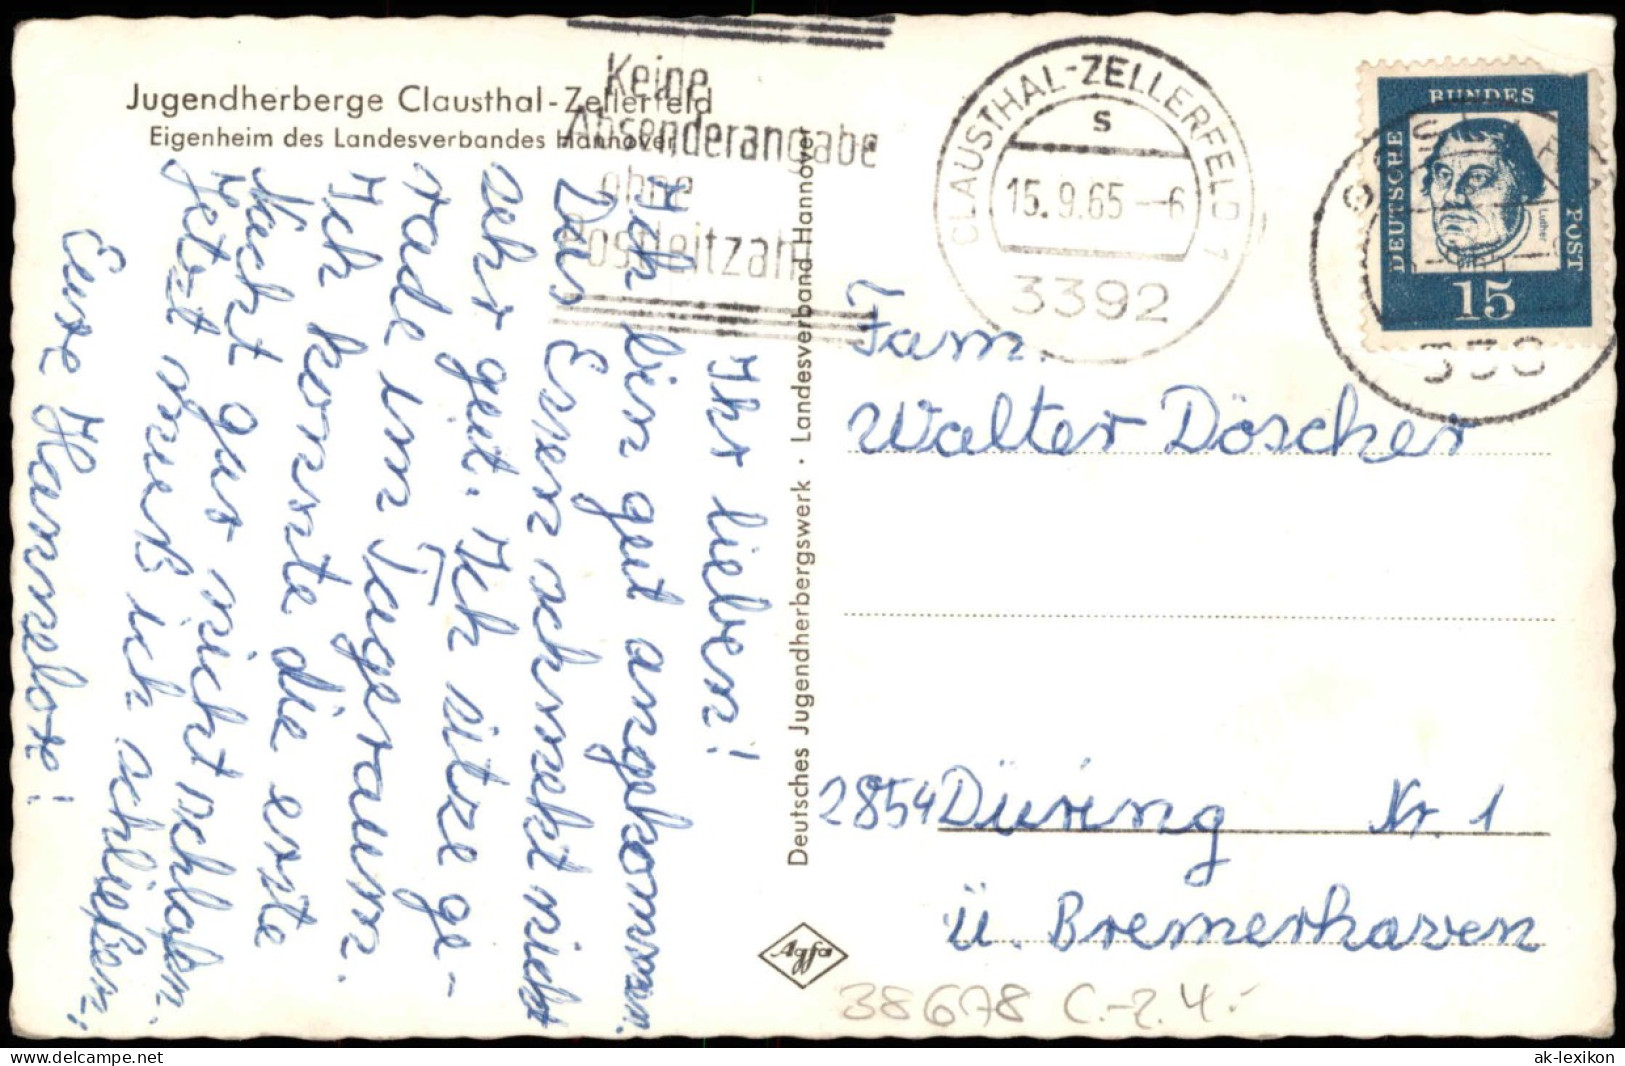 Jugendherberge Clausthal-Zellerfeld
Eigenheim des Landesverbandes Hannover
Keine
Absenderangabe
ohne
Postleitzahl
CLAUSTHAL-ZELLERFELD 1
s
15.9.65--6
3392
DEUTSCHE
BUNDES
POST
Luther
15
338
Ihr lieben!
Ich bin gut angekommen.
Das Essen schmekt nicht
sehr gut. Ich sitze ge-
rade im Tagesraum.
Ich konnte die erste
Nacht gut nicht schlafen.
Jetzt muß ich schließen,:
Eure Hannelore!
Deutsches Jugendherbergswerk · Landesverband Hannover
Fam.
Walter Döscher
2854 Düring Nr. 1
ü. Bremerhaven
Agfa
38678 C.-Z. 4.-
ak-lexikon
the-collectors.com